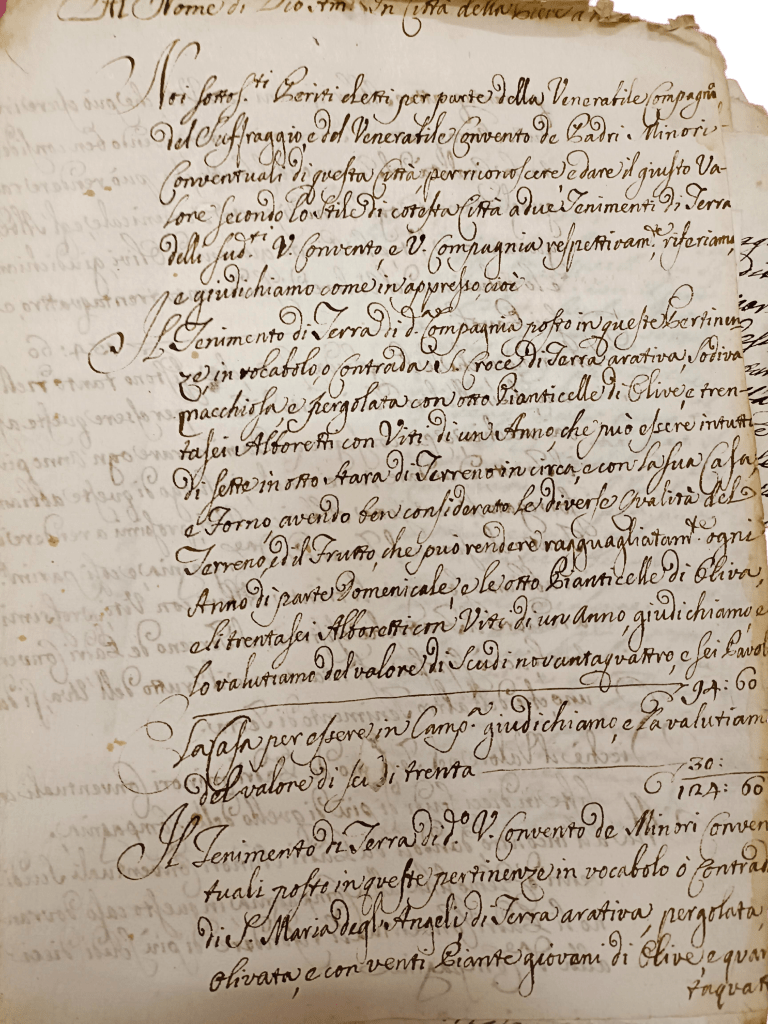 Al Nome di Dio Am: In Città della Pieve a
Noi sottos.ti Periti eletti per parte della Venerabile Compagn.a
del Suffraggio, e del Venerabile Convento de Padri Minori
Conventuali di questa Città, per riconoscere e dare il giusto Va-
lore secondo lo stile di cotesta Città a due Tenimenti di Terra
delli sud.ti V. Convento, e V. Compagnia respettivam.te, riferiamo,
e giudichiamo come in appresso, cioè
Il Tenimento di Terra di d.a Compagnia posto in queste Pertinen
ze, in vocabolo, o contrada S. Croce di Terra arativa, sodiva
macchiosa, e pergolata con otto Pianticelle di Olive, e tren-
tasei Alboretti con Viti di un Anno, che può essere in tutti
di sette in otto stara di Terreno in circa, e con la sua Casa,
e Forno, avendo ben considerato le diverse Qualità del
Terreno, ed il Frutto, che può rendere ragguagliatam.te ogni
Anno di parte Domenicale, e le otto Pianticelle di Oliva,
e li trentasei Alboretti con Viti di un Anno, giudichiamo, e
lo valutiamo del valore di Scudi novantaquattro, e sei Pavol
94: 60
La Casa per essere in Camp.a giudichiamo, e la valutiam
del valore di sc.di trenta 30:
124: 60
Il Tenimento di Terra di d.o V. Convento de Minori Conven
tuali posto in queste pertinenze in vocabolo ò Contrad
di S. Maria degl'Angeli di Terra arativa, pergolata,
Olivata, e con venti Piante giovani di Olive e quar
taquatt